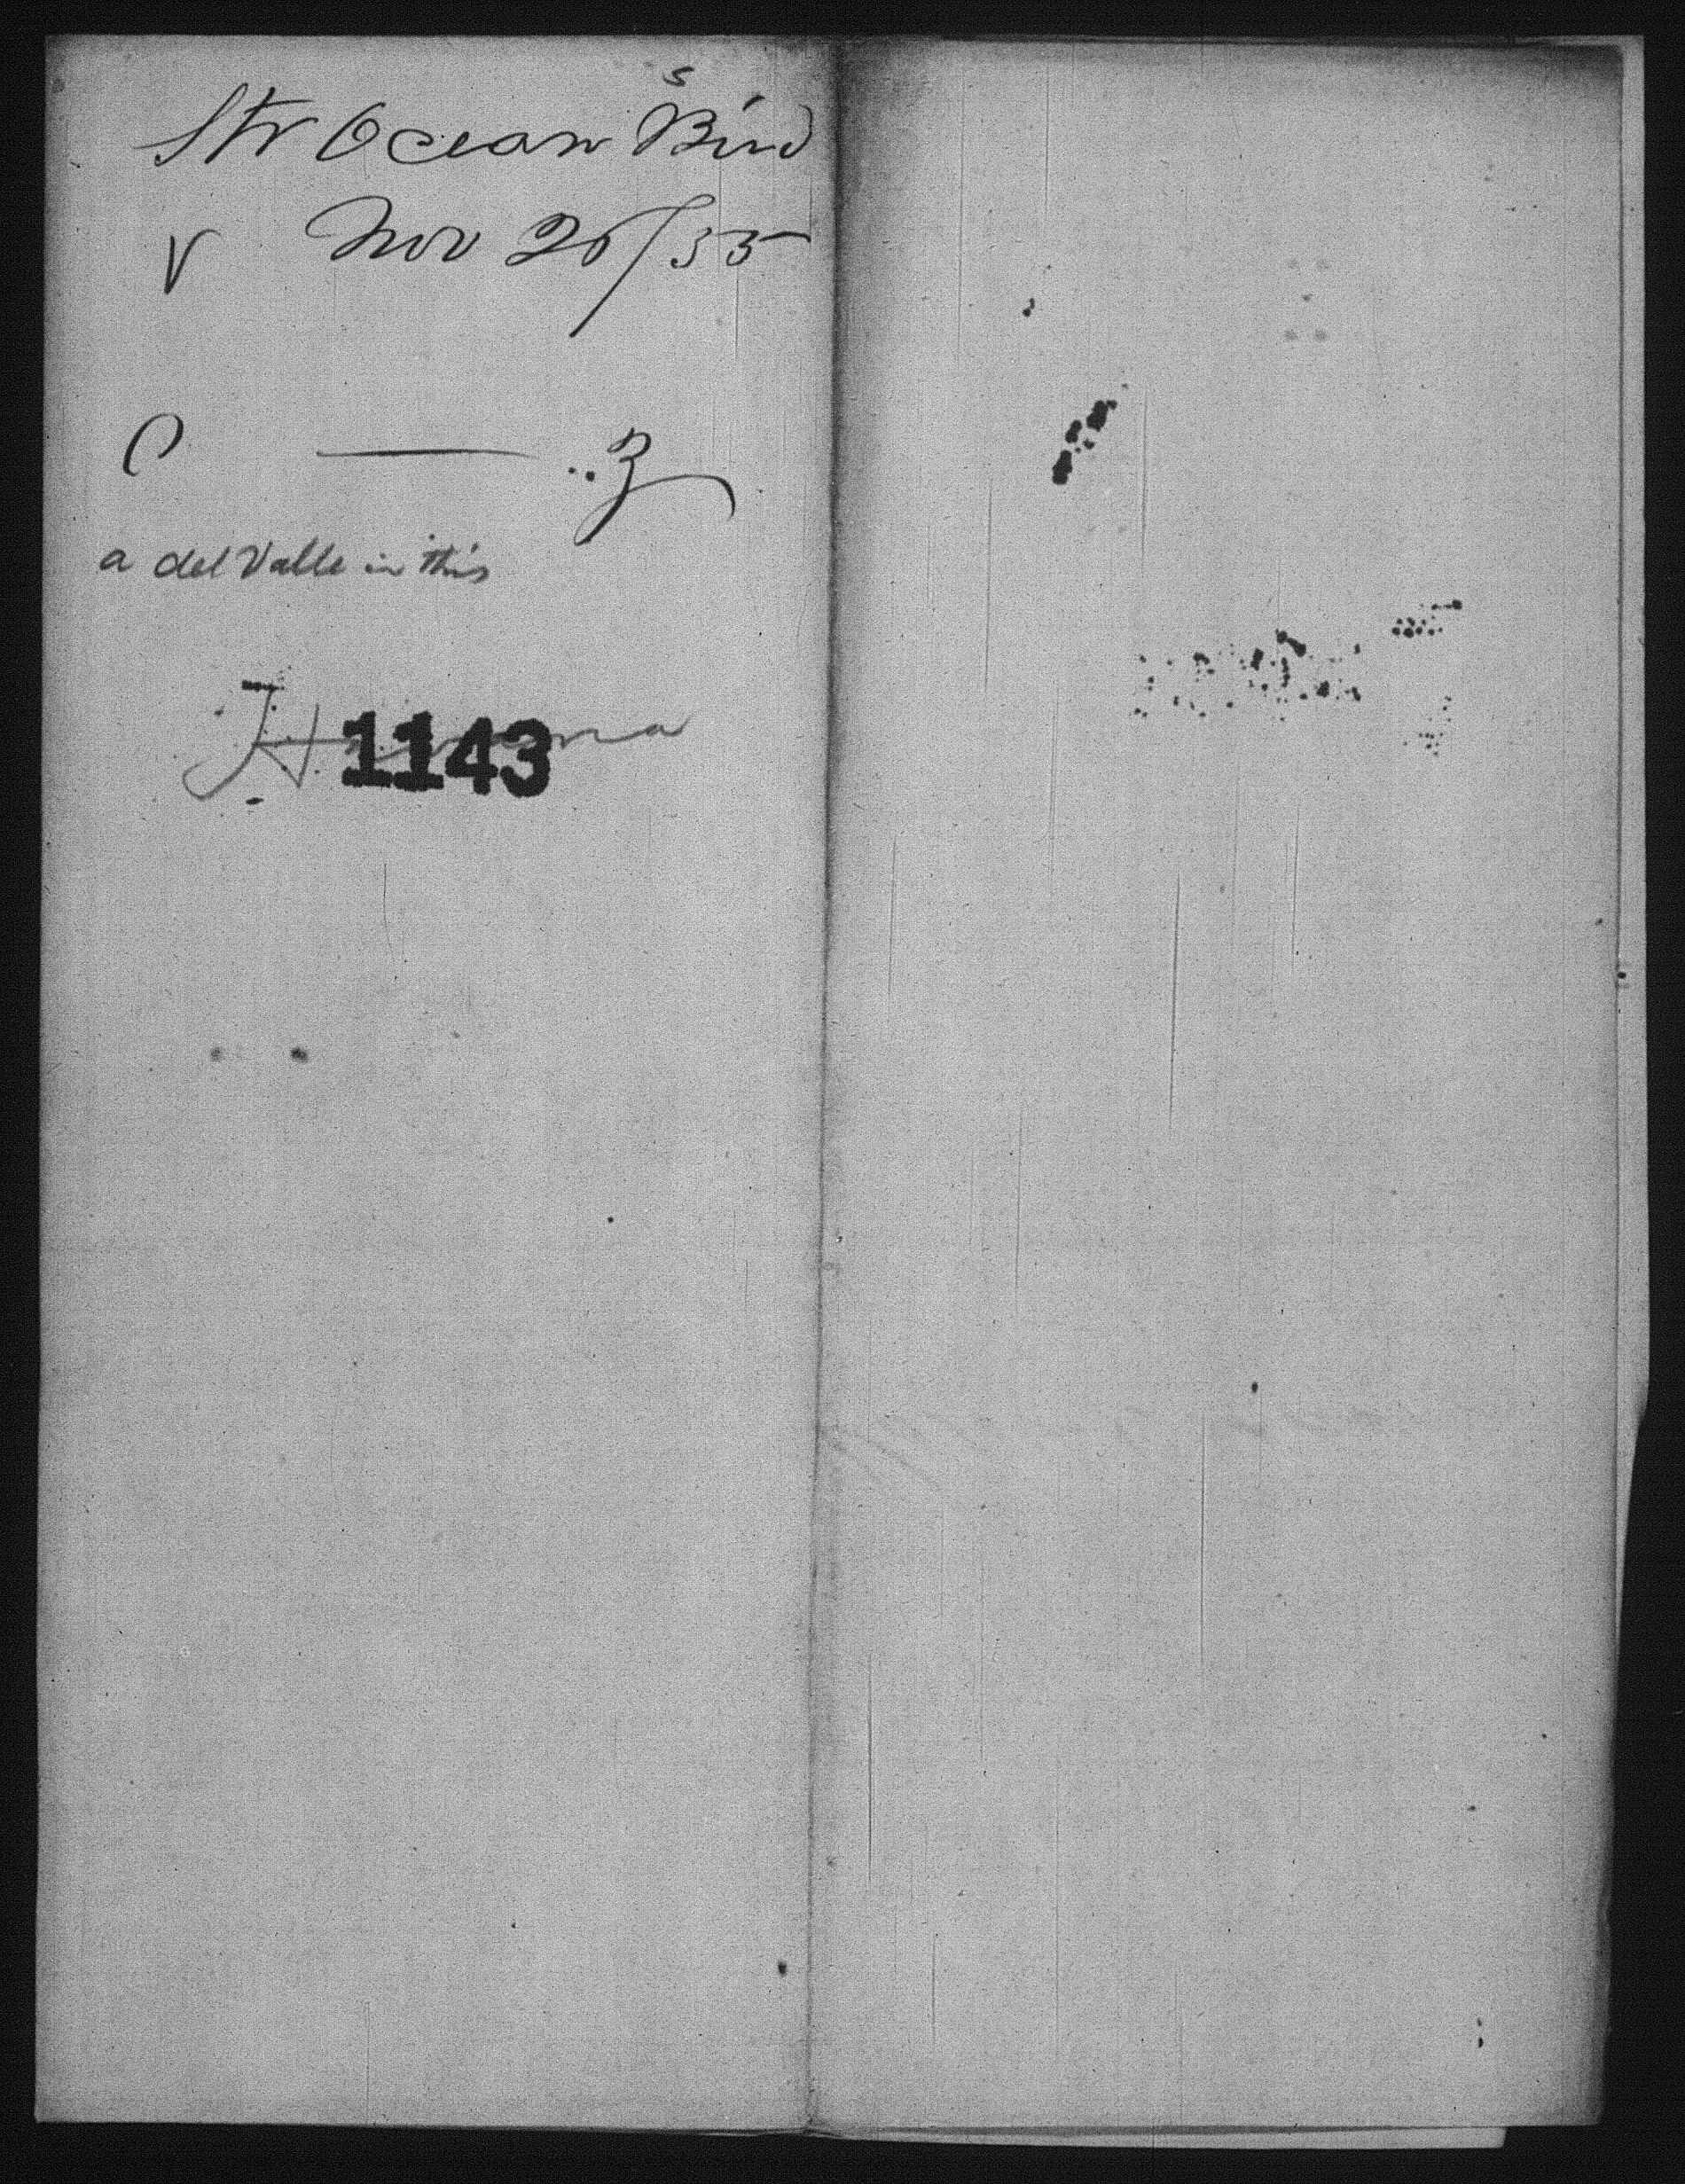 s
Str Ocean Bird
v Nov 26/55
C — 3
a del Valle in this
Havana
1143